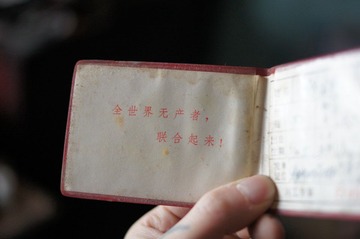 全世界无产者，
联合起来！